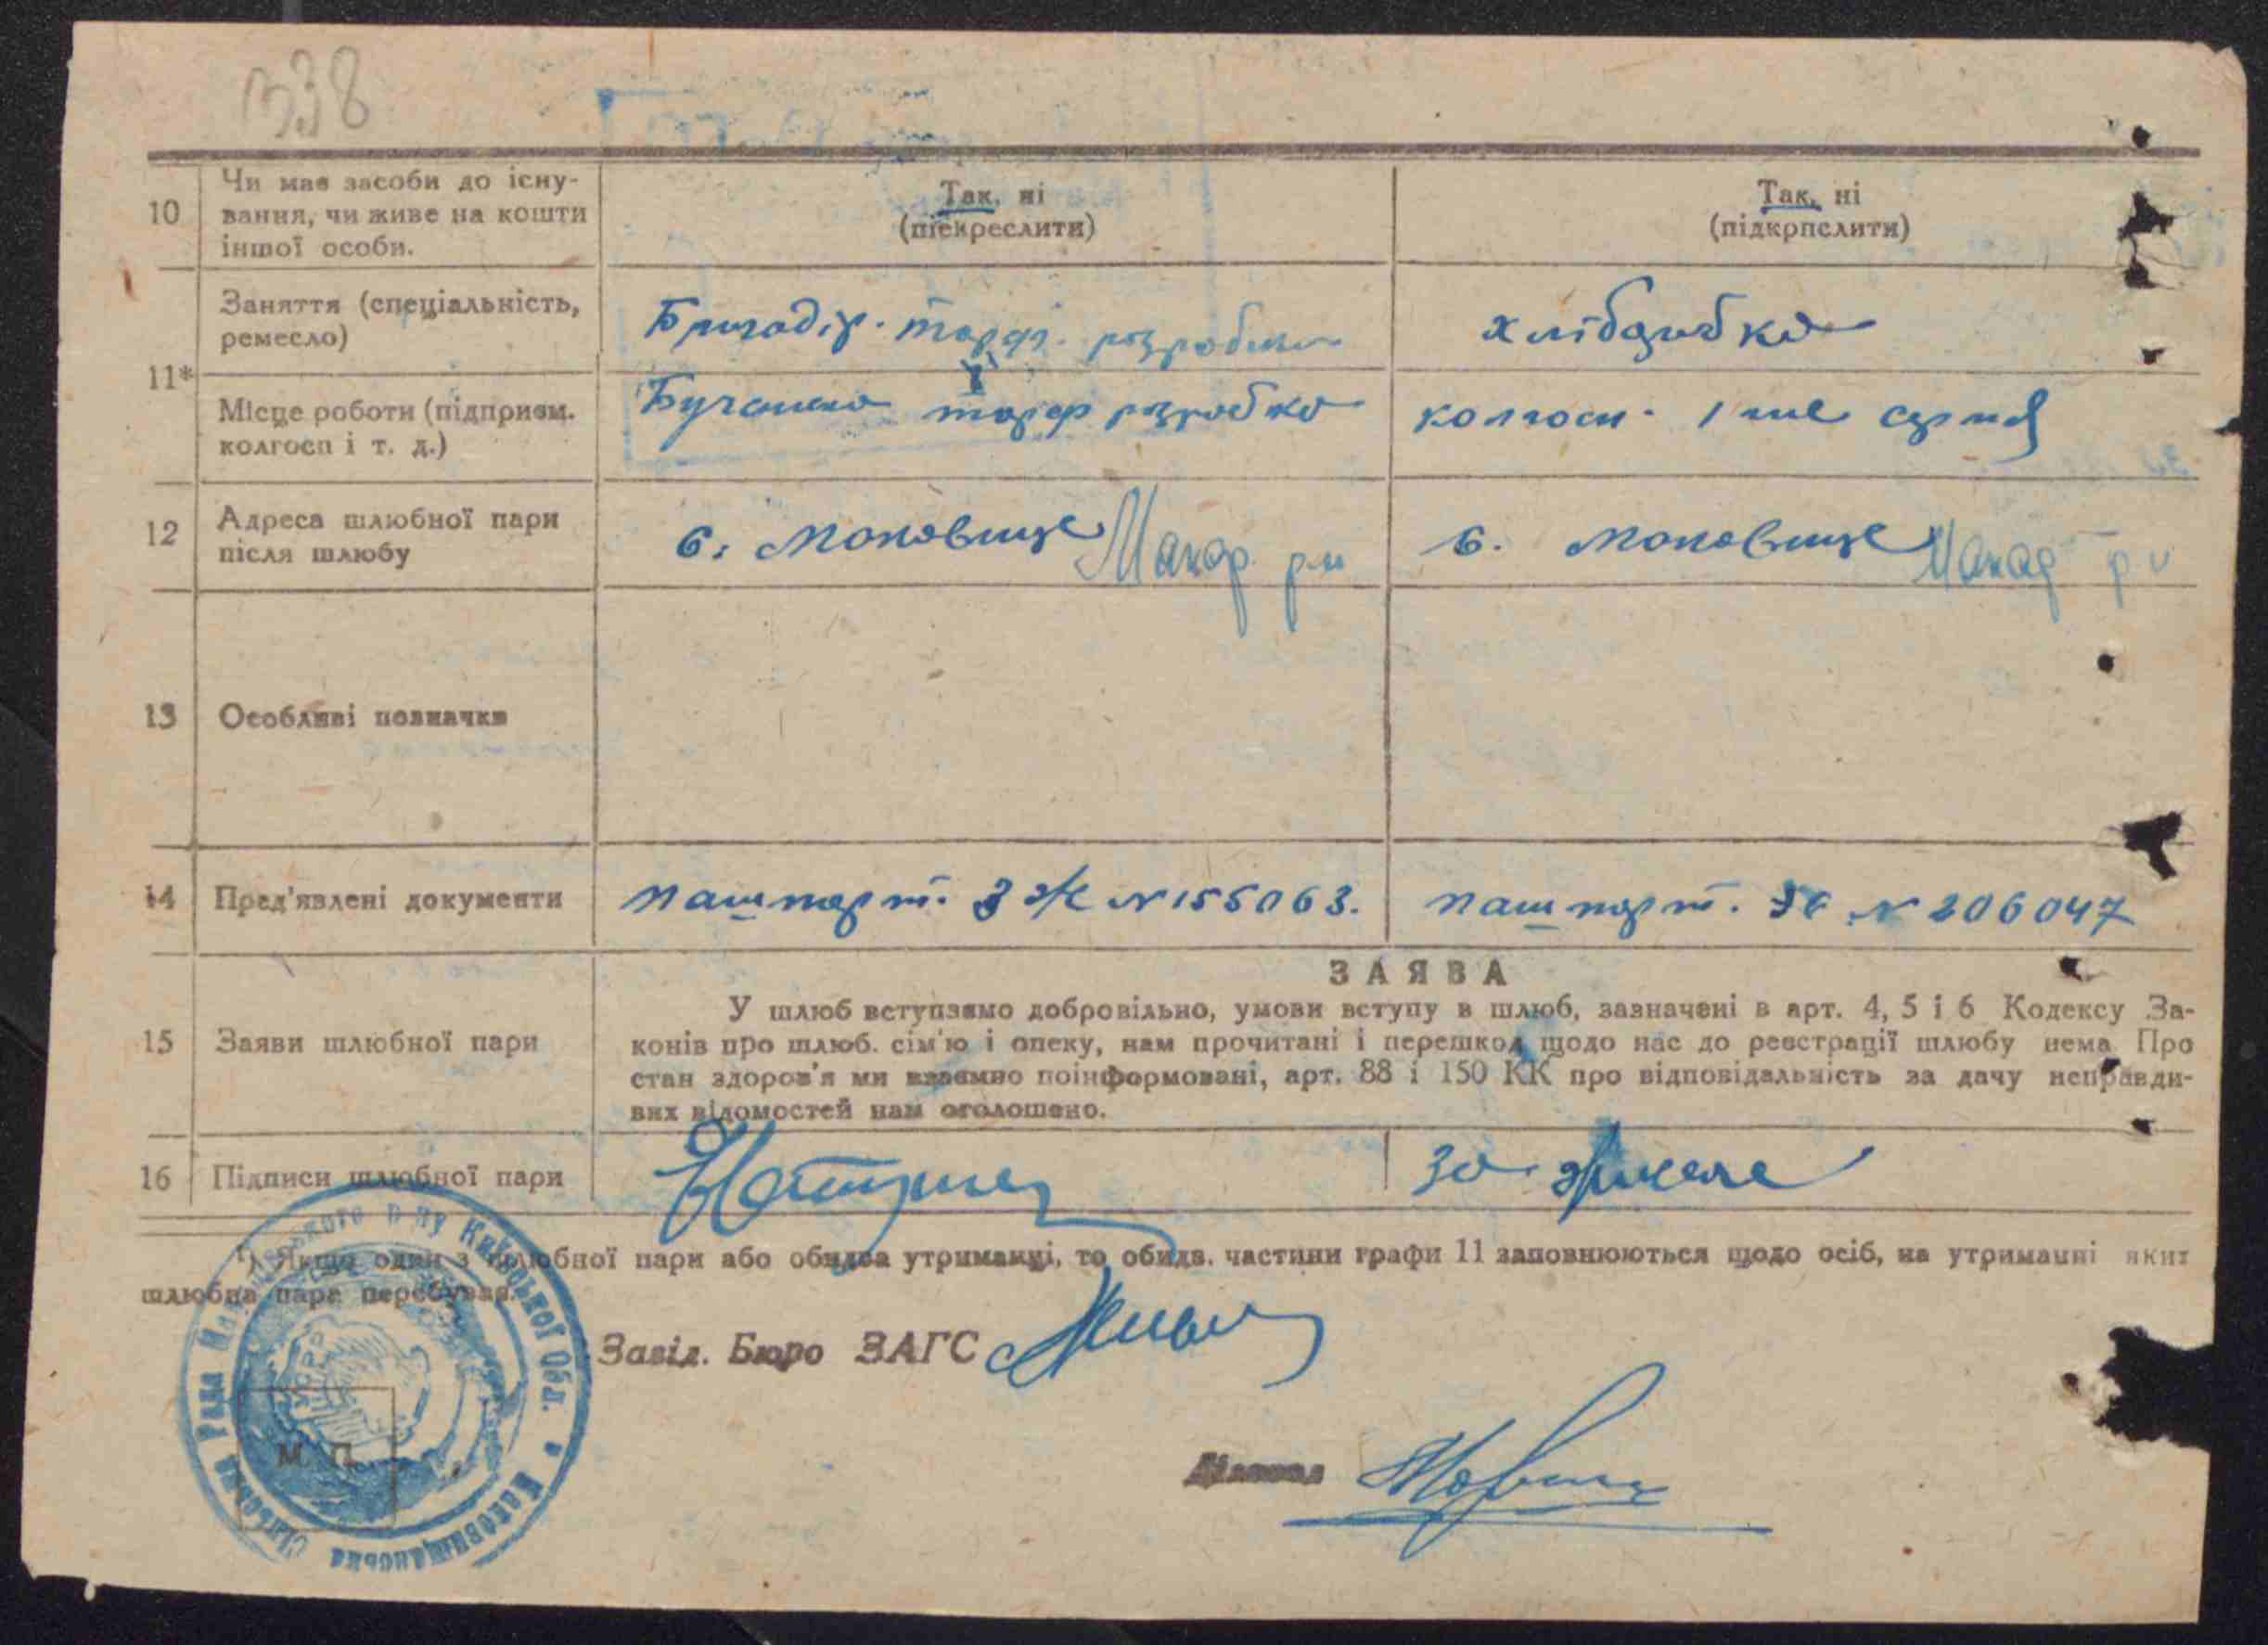 338
10
Чи має засоби до існу-
вання, чи живе на кошти
іншої особи.
Так, ні
(підкреслити)
Так, ні
(підкрпслити)
11*
Заняття (спеціальність,
ремесло)
Бригадір. торф. розробки
хліборобка
Місце роботи (підприєм.
колгосп і т. д.)
Бучанська торф розробка
колгосп. 1 ше серпня
12
Адреса шлюбної пари
після шлюбу
с. Маковище Макар. р-н
с. Маковище Макар р н
13
Особливі позначки
14
Пред'явлені документи
пашпорт. З Ж № 155063.
пашпорт. № 206047
15
Заяви шлюбної пари
ЗАЯВА
У шлюб вступаємо добровільно, умови вступу в шлюб, зазначені в арт. 4, 5 і 6 Кодексу За-
конів про шлюб. сім'ю і опеку, нам прочитані і перешкод щодо нас до реєстрації шлюбу нема Про
стан здоров'я ми взаємно поінформовані, арт. 88 і 150 КК про відповідальність за дачу неправди-
вих відомостей нам оголошено.
16
Підписи шлюбної пари
*) Якщо один з шлюбної пари або обидва утриманці, то обидв. частини графи 11 заповнюються щодо осіб, на утриманні яких
шлюбна пара перебуває.
Завід. Бюро ЗАГС
Діловод
М. П.
Маковищанська Сільська Рада Макарівського р-ну Київської Обл.
УСРР